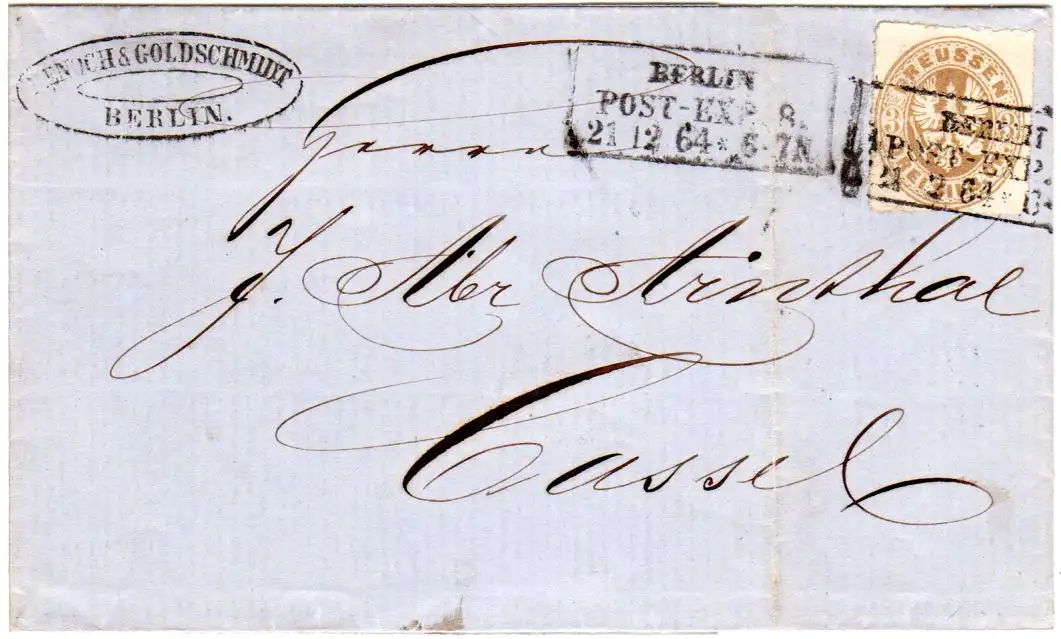 ENOCH & GOLDSCHMIDT
BERLIN.
BERLIN
POST-EXP. 8.
21 12 64 * 6-7N
PREUSSEN
BERLIN
POST-EXP
21 12 64 * 6-
Herrn
J. Abr Arnthal
Cassel